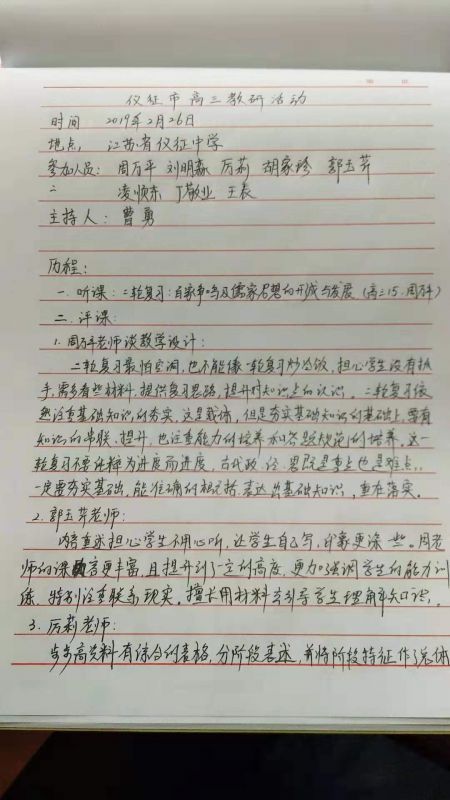 仪征市高三教研活动
时间 2019年2月26日
地点 江苏省仪征中学
参加人员: 周万平 刘明淼 厉莉 胡家珍 郭玉芹
凌顺东 丁敬业 王表
主持人: 曹勇
历程:
一. 听课: 二轮复习: 百家争鸣及儒家思想的形成与发展 (高三15. 周万平)
二. 评课:
1. 周万平老师谈教学设计:
二轮复习最怕空洞, 也不能像一轮复习炒冷饭, 担心学生没有抓
手, 需要有些材料, 提供复习思路, 提升对知识点的认识。二轮复习依
然注重基础知识的夯实, 这是载体, 但是夯实基础知识的基础上, 要有
知识的串联、提升, 也注重能力的培养和答题规范的培养。这一
轮复习不要纯粹为进度而进度, 古代政、经、思既是重点也是难点,
一定要夯实基础, 能准确的概括、表达出基础知识, 重在落实。
2. 郭玉芹老师:
内容直述担心学生不用心听, 让学生自己写, 印象更深一些。周老
师的课内容更丰富, 且提升到了一定的高度, 更加强调学生的能力训
练, 特别注重联系现实。擅长用材料去引导学生理解知识。
3. 厉莉老师:
步步高资料有综合的表格, 分阶段表述, 并将阶段特征作了总体